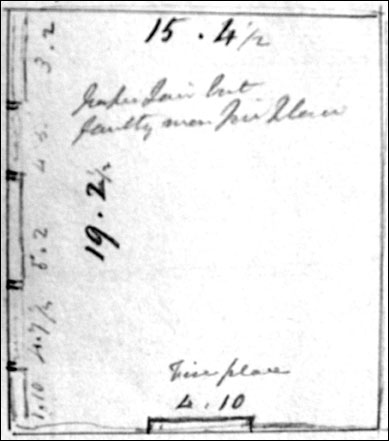 15 . 4 1/2
but
faulty near Fire Place
19 . 2 1/2
3 . 2
5 . 2
4 . 7 1/2
1 . 10
Fire place
4 . 10